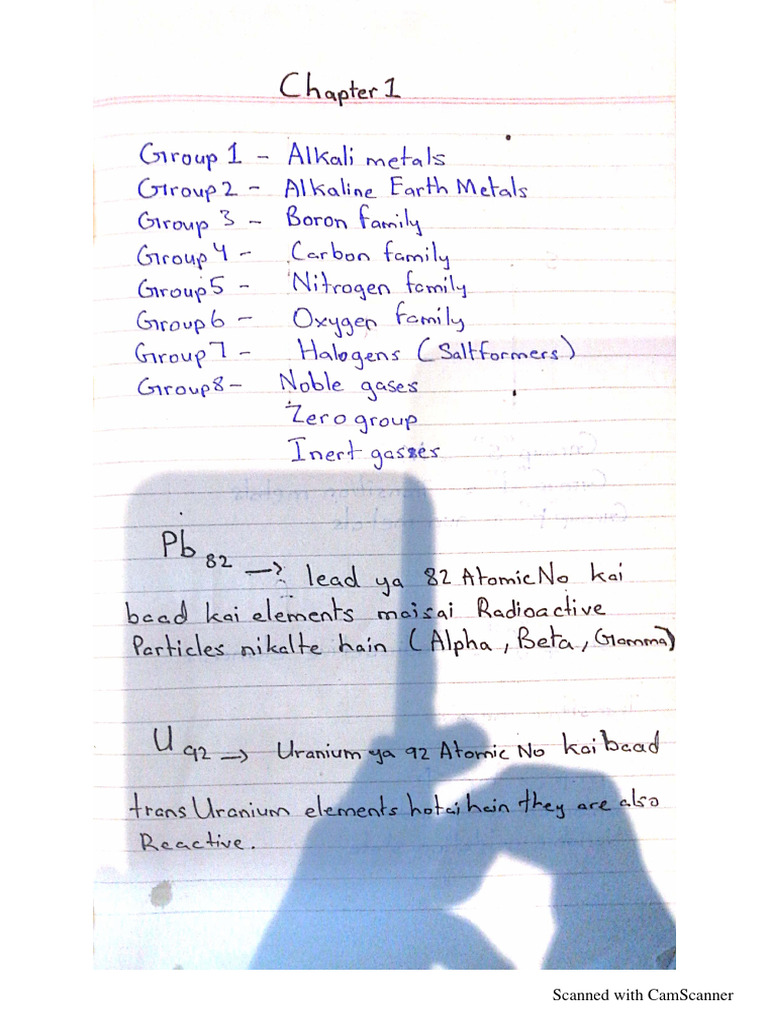 Chapter 1
Group 1 - Alkali metals
Group 2 - Alkaline Earth Metals
Group 3 - Boron family
Group 4 - Carbon family
Group 5 - Nitrogen family
Group 6 - Oxygen family
Group 7 - Halogens (Saltformers)
Group 8 - Noble gases
Zero group
Inert gasses
Pb 82 → lead ya 82 Atomic No kai
baad kai elements maisai Radioactive
Particles nikalte hain (Alpha, Beta, Gamma)
U 92 → Uranium ya 92 Atomic No kai baad
trans Uranium elements hotai hain they are also
Reactive.
Scanned with CamScanner